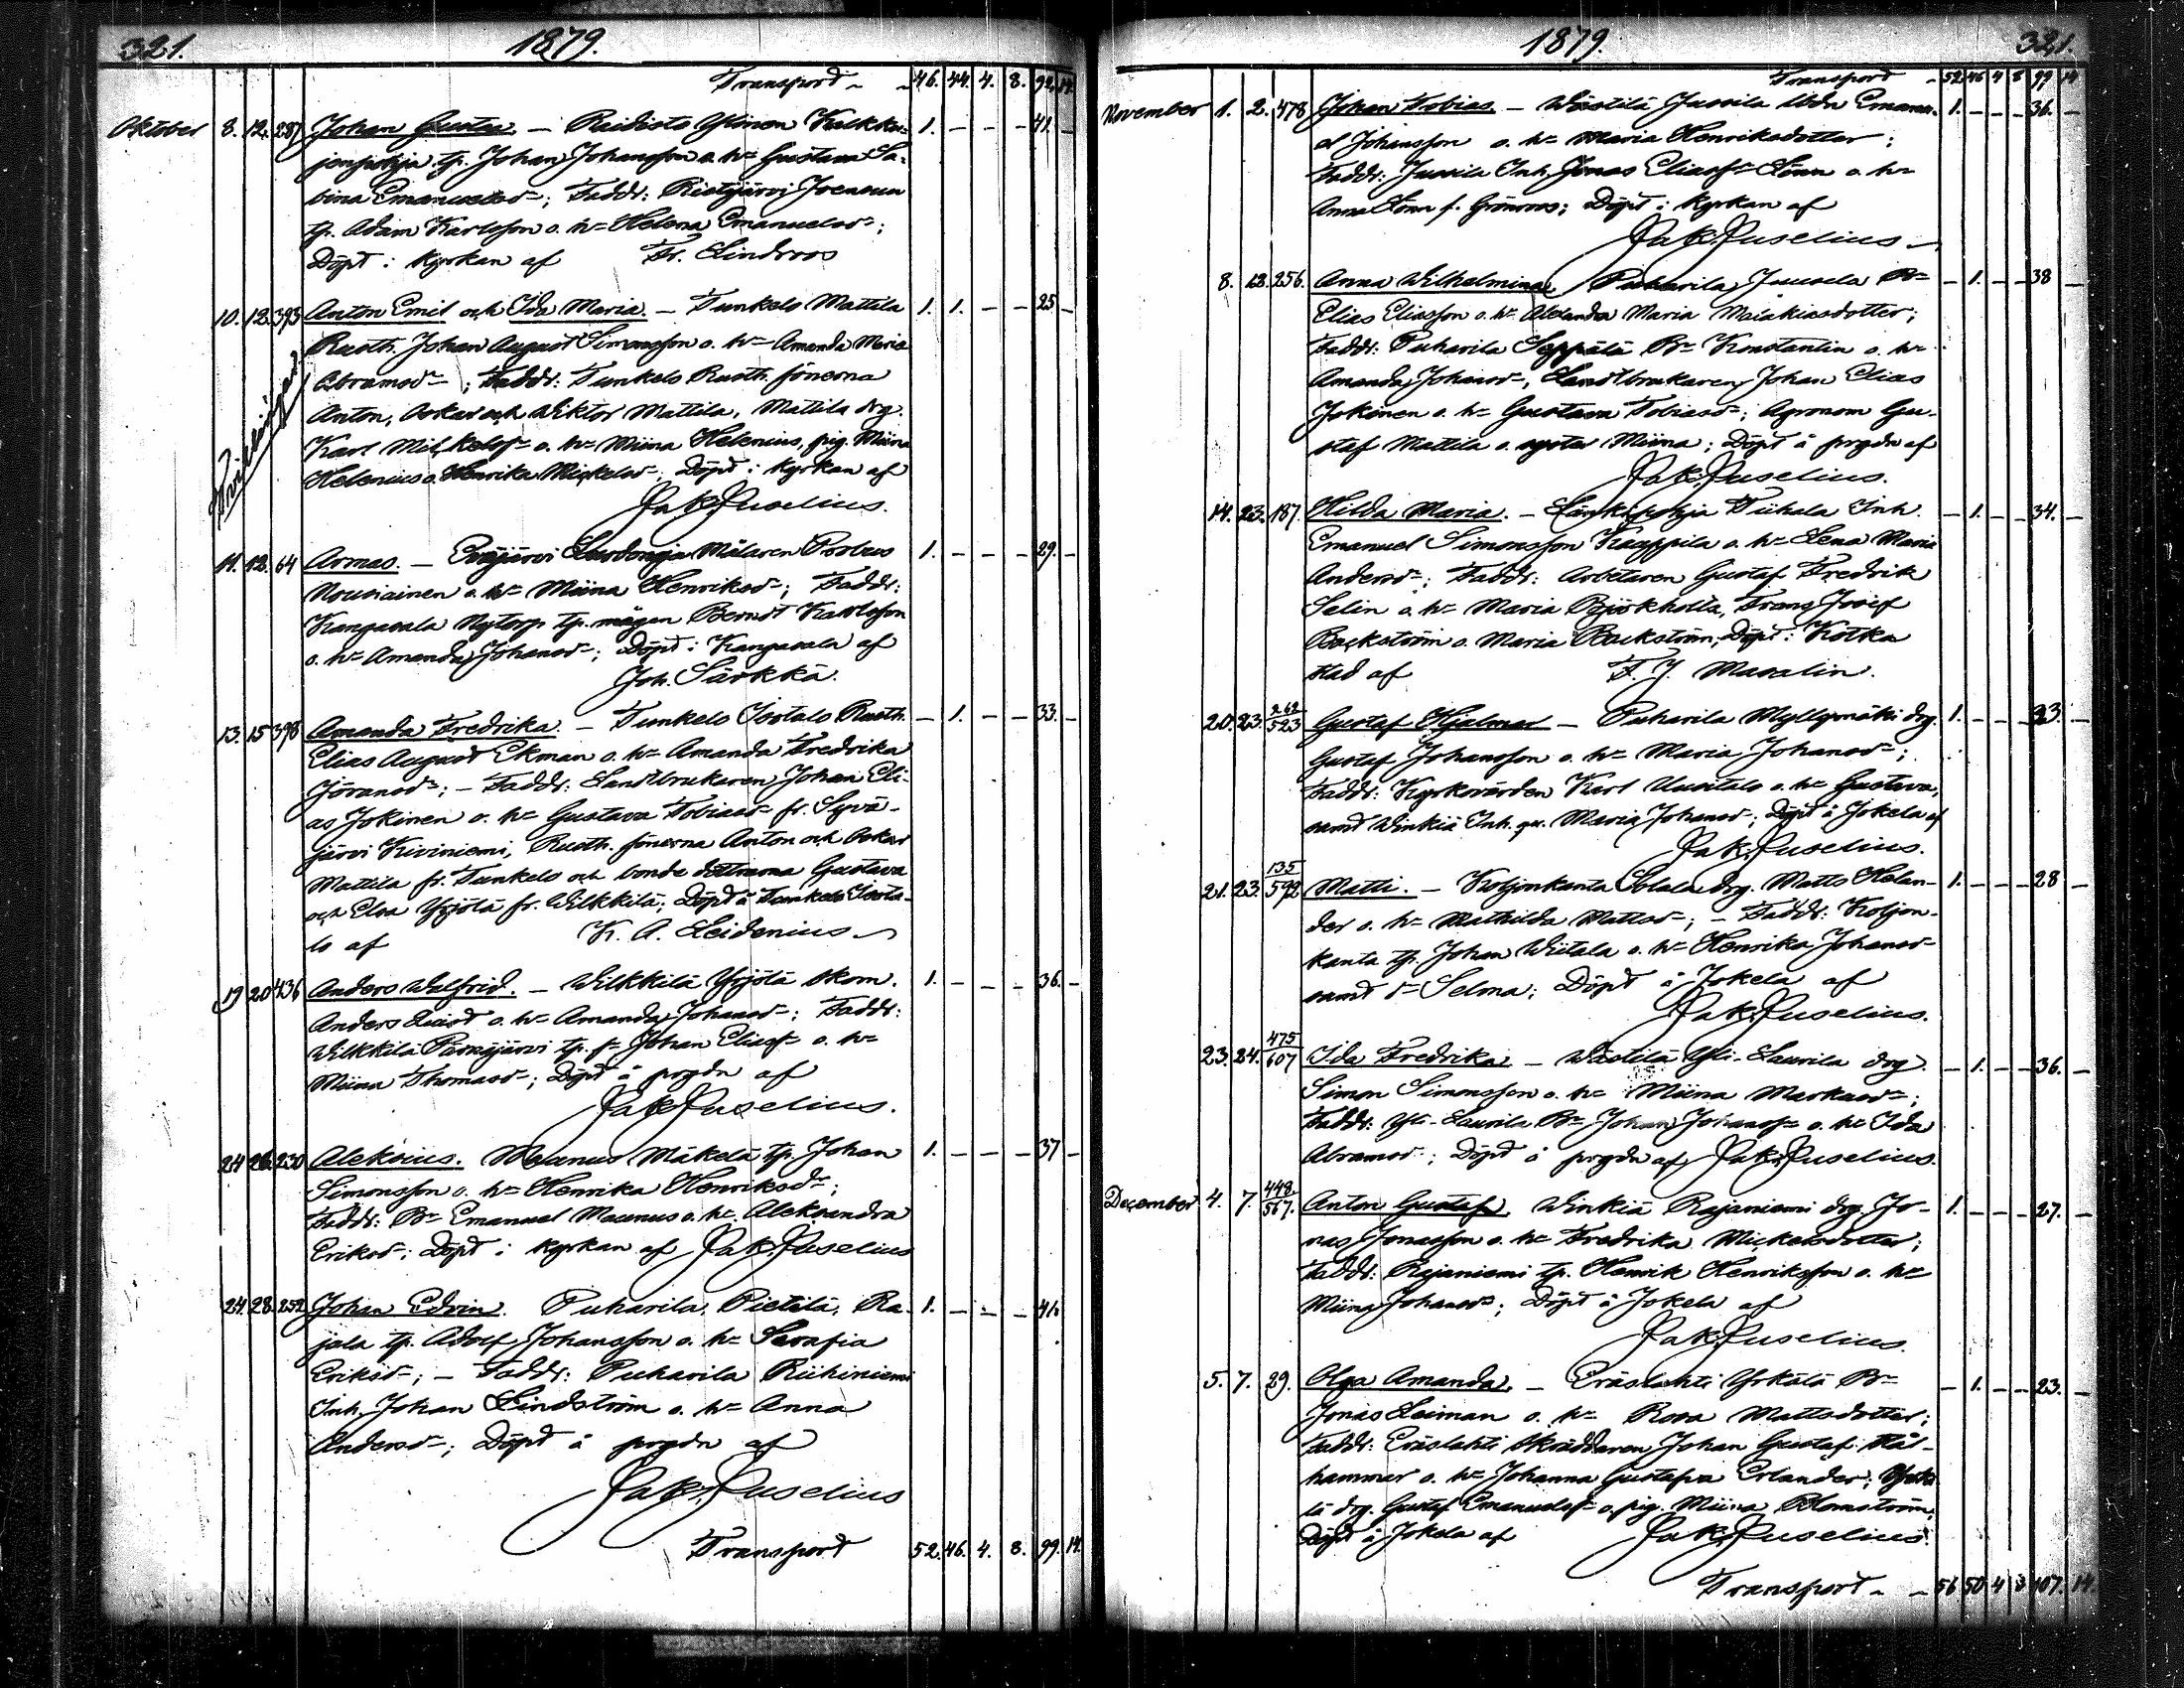 321. 1879.
Transport 46. 44. 4. 8. 92. 14.
Oktober 8. 12. 287 Johan Gustav. — Reidisto Ylinen Kalkku- 1. — — — 41. —
jenpohja tp. Johan Johansson o. h= Gustava Sa-
bina Emanuelsd=; Faddr: Ristijärvi Joensuu
tp. Adam Karlsson o. h= Helena Emanuelsd=;
Döpt i kyrkan af Fr. Lindroos
10. 12. 393 Anton Emil och Ida Maria. — Tunkelo Mattila 1. 1. — — 25 —
Tvillingar
Rusth. Johan August Simonsson o. h= Amanda Maria
Abramsd=; Faddr: Tunkelo Rusth. sönerna
Anton, Oskar och Wiktor Mattila, Mattila drg.
Karl Mickelss= o. h= Miina Helenius, pig. Miina
Helenius o. Henrika Mickelsd=. Döpt i kyrkan af
Jak. Juselius.
11. 12. 64 Armas. — Eväjärvi Målaren Porbus 1. — — — 29. —
Nousiainen o. h= Miina Henriksd=; Faddr:
Kangasala Nytorp tp. mågen Berndt Karlsson
o. h= Amanda Johansd=; Döpt i Kangasala af
Joh. Särkkä.
13. 15 398 Amanda Fredrika. — Tunkelo Isotalo Rusth. — 1. — — 33. —
Elias August Ekman o. h= Amanda Fredrika
Göransd=; — Faddr: Landtbrukaren Johan Eli-
as Jokinen o. h= Gustava Tobiasd= fr. Syvä-
järvi Kiviniemi, Rusth. sönerna Anton och Oskar
Mattila fr. Tunkelo och bonde döttrarna Gustava
och Elva Yrjölä fr. Wilkkilä; Döpt å Tunkelo Isota-
lo af K. A. Leidenius
19 20 436 Anders Walfrid. — Wilkkilä Yrjölä skom. 1. — — — 36. —
Anders Qvist o. h= Amanda Johansd=; Faddr:
Wilkkilä Parsäjärvi tp. s= Johan Eliass= o. h=
Miina Thomasd=; Döpt å prgdn af
Jak. Juselius.
24 26. 230 Aleksius. Maunus Mäkelä tp. Johan 1. — — — 37 —
Simonsson o. h= Henrika Henriksd=;
Faddr: B= Emanuel Maunus o. h=. Aleksandra
Eriksd=; Döpt i kyrkan af Jak. Juselius
24. 28. 252 Johan Edvin. Puharila, Pietilä, Ra- 1. — — — 41.
jala tp. Adolf Johansson o. h= Serafia
Eriksd=; — Faddr: Puharila Riihiniemi
Inh. Johan Lindström o. h= Anna
Andersd=; Döpt å prgdn af
Jak. Juselius
Transport 52. 46. 4. 8. 99. 14.
1879. 321.
Transport 52 46 4 8 99 14
November 1. 2. 478 Johan Tobias. — Wästilä Jussila Emanu- 1. — — — 36. —
el Johansson o. h= Maria Henriksdotter;
Faddr: Jussila Inh. Jonas Eliass= Lönn o. h=
Anna Lönn f. Grönroos; Döpt i kyrkan af
Jak. Juselius
8. 12. 256. Anna Wilhelmina. Puharila Juusela B= — 1. — — 38
Elias Eliasson o. h= Alexandra Maria Malakiasdotter;
Faddr: Puharila Seppälä B= Konstantin o. h=
Amanda Johansd=, Landtbrukaren Johan Elias
Jokinen o. h= Gustava Tobiasd=; Agronom Gu-
staf Mattila o. syster Miina; Döpt å prgdn af
Jak. Juselius.
14. 23. 187. Hilda Maria. — Länkipohja Tiihala Inh. — 1. — — 34. —
Emanuel Simonsson Kaappila o. h= Lena Maria
Andersd=; Faddr: Arbetaren Gustaf Fredrik
Selin o. h= Maria Björkholta, Frans Josef
Backström o. Maria Backström; Döpt i Kotka
stad af F. J. Masalin.
20. 23. 262/523 Gustaf Hjalmar — Puharila Myllymäki drg. 1. — — — 23. —
Gustaf Johansson o. h= Maria Johansd=;
Faddr: Kyrkovärden Karl Uusitalo o. h= Gustava,
samt Winkiä Inh. qv. Maria Johansd=; Döpt å Jokela af
Jak. Juselius.
21. 23. 135/592 Matti. — Koljonkanta Solala drg. Matts Helan- 1. — — — 28 —
der o. h= Mathilda Mattsd=; — Faddr: Koljon-
kanta tp. Johan Wiitala o. h= Henrika Johansd=
samt d= Selma; Döpt å Jokela af
Jak. Juselius.
23. 24. 475/607 Ida Fredrika — Wästilä Yli-Laurila drg. — 1. — — 36. —
Simon Simonsson o. h= Miina Markusd=;
Faddr: Yli-Laurila B= Johan Johanss= o. h= Ida
Abramsd=; Döpt å prgdn af Jak. Juselius.
December 4. 7. 448/567. Anton Gustaf. Winkiä Rajaniemi drg. Jo- 1. — — — 27. —
nas Jonasson o. h= Fredrika Mickelsdotter;
Faddr: Rajaniemi tp. Henrik Henriksson o. h=
Miina Johansd=; Döpt å Jokela af
Jak. Juselius.
5. 7. 29. Olga Amanda. — Eräslahti Yrkälä B= — 1. — — 23. —
Jonas Leiman o. h= Rosa Mattsdotter;
Faddr: Eräslahti skräddaren Johan Gustaf Stål-
hammar o. h= Johanna Gustafva Erlander; Yrkä-
lä drg. Gustaf Emanuelss= o. pig. Miina Blomström;
Döpt å Jokela af Jak. Juselius.
Transport 56 50 4 8 107. 14